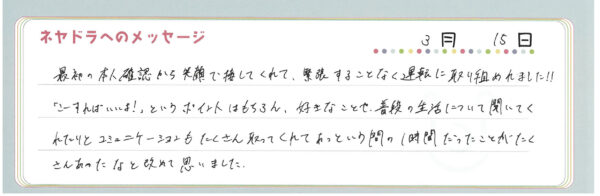 ネヤドラへのメッセージ 3月 15日
最初の本人確認から笑顔で接してくれて、緊張することなく運転に取り組めれました!!
「こーすればいいよ!」というポイントはもちろん、好きなことや、普段の生活について聞いてく
れたりとコミュニケーションもたくさん取ってくれてあっという間の1時間だったことがたく
さんあったなと改めて思いました。